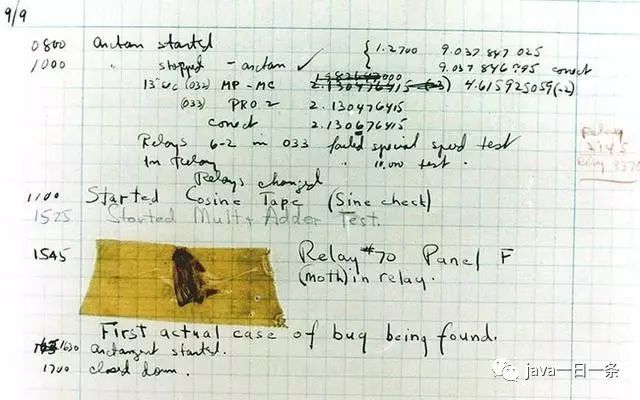 9/9
0800 arctan started { 1.2700 9.037 847 025
1000 " stopped - arctan ✓ 9.037 846 995 correct
13"uc (032) MP - MC 2.130476415 4.615925059(-2)
(033) PRO 2 2.130476415
correct 2.130676415
Relays 6-2 in 033 failed special speed test
in relay " 10.000 test.
Relay
2145
Relay 3370
Relays changed
1100 Started Cosine Tape (Sine check)
1525 Started Mult + Adder Test.
1545 Relay #70 Panel F
(moth) in relay.
First actual case of bug being found.
1630 arctangent started.
1700 closed down.
java一日一条